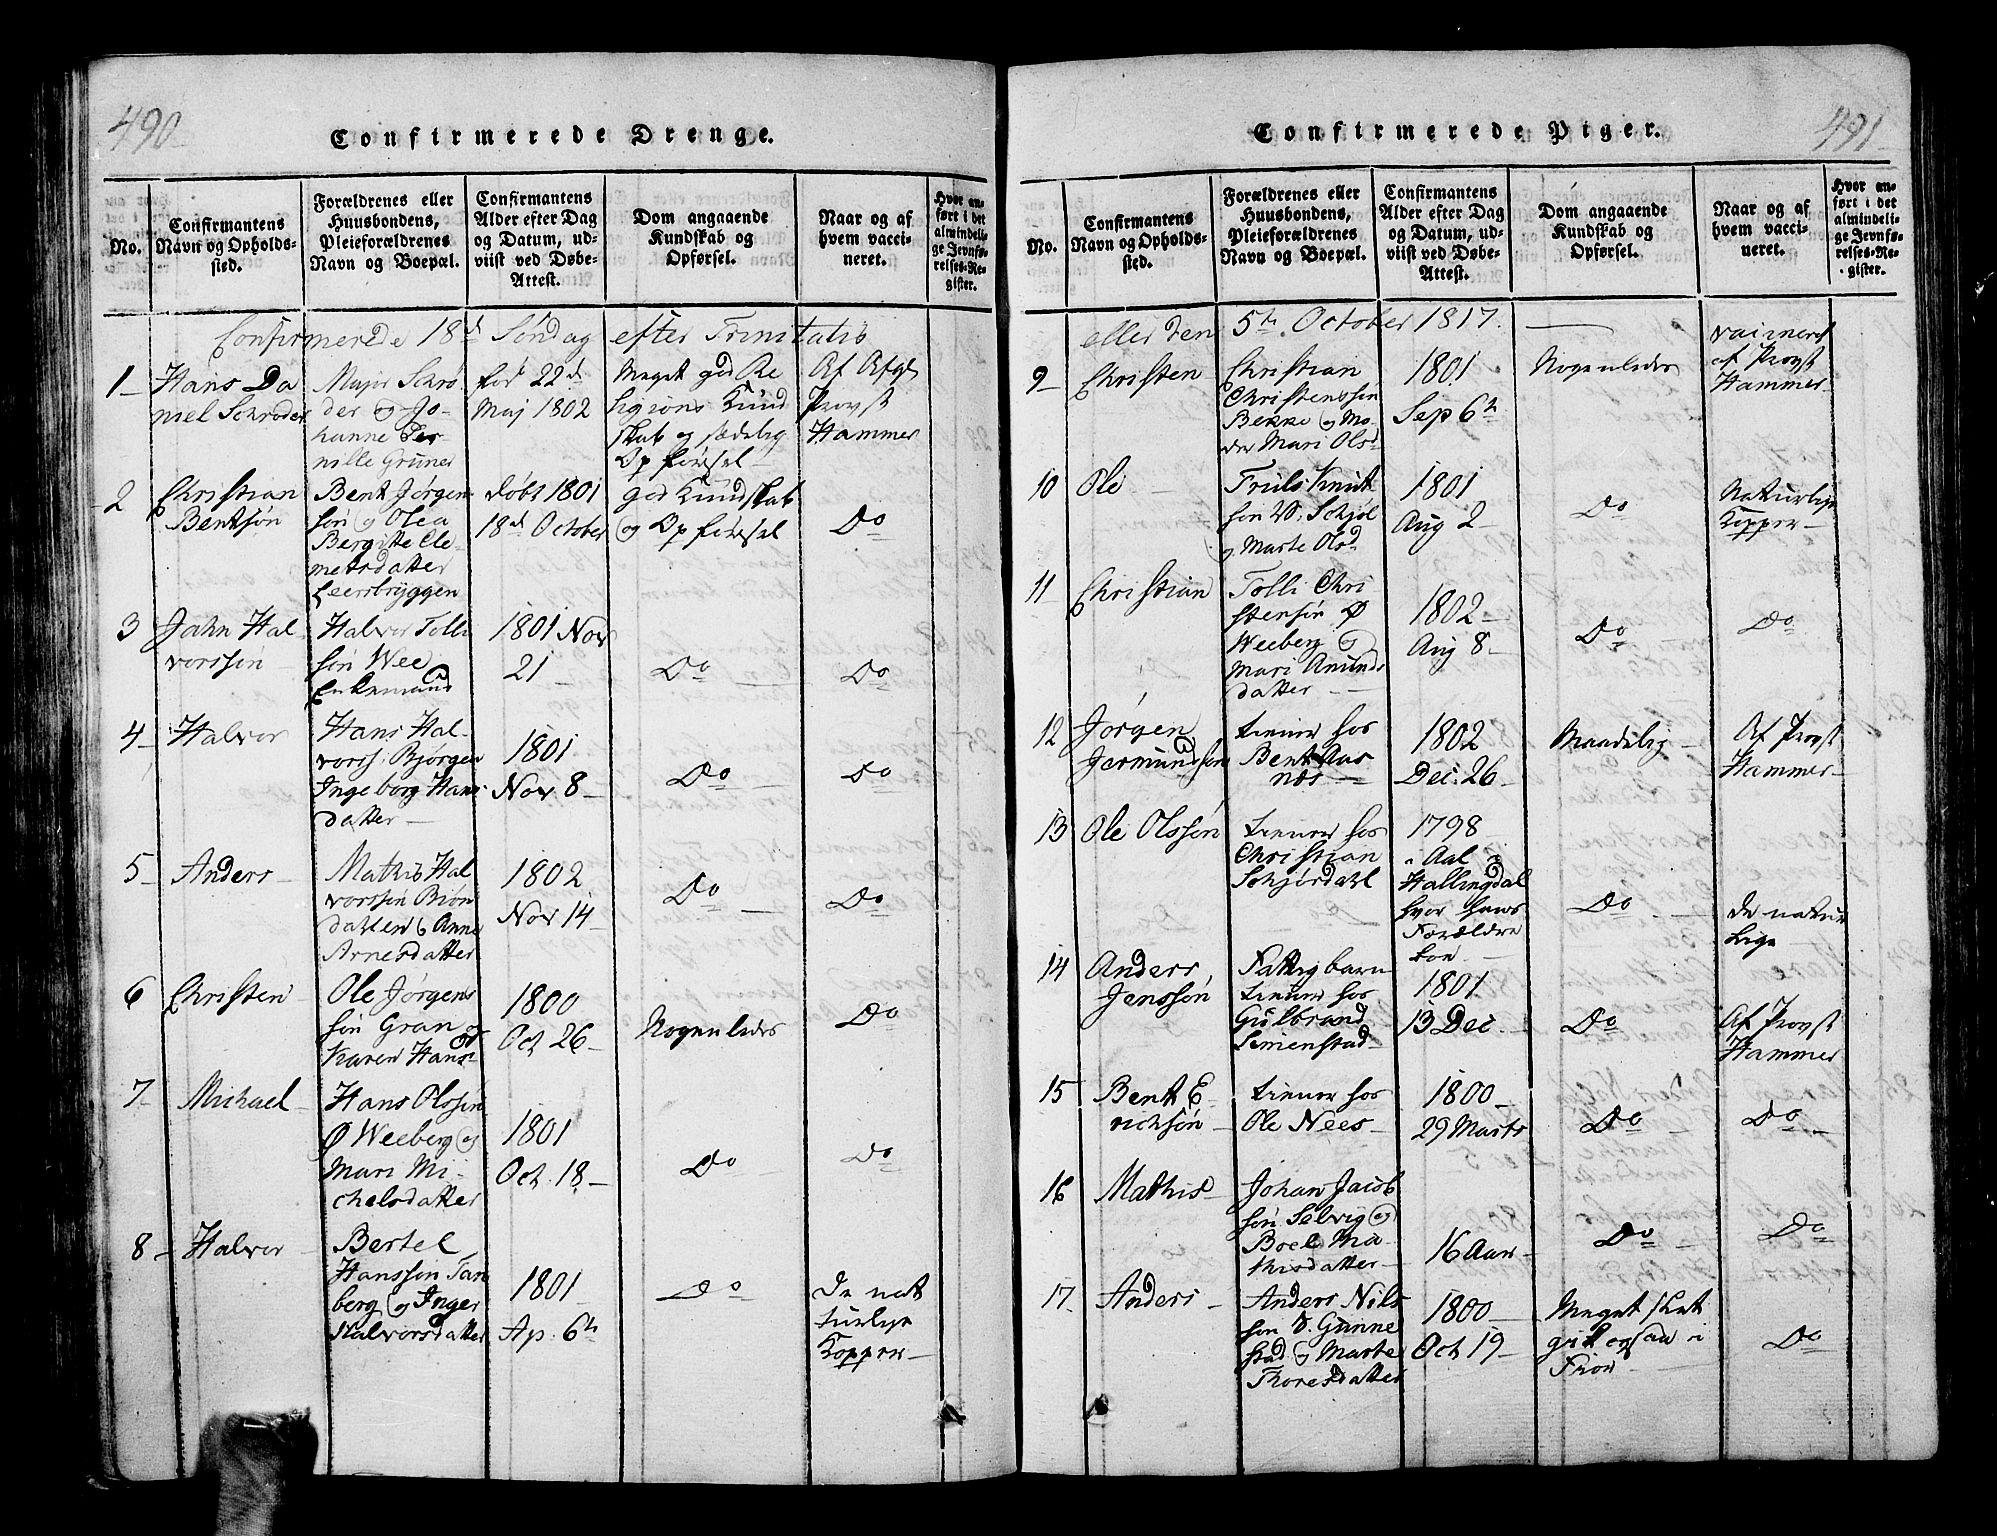 490
Confirmerede Drenge.
No.
Confirmantens
Navn og Opholds-
sted.
Forældrenes eller
Huusbondens,
Pleieforældrenes
Navn og Boepæl.
Confirmantens
Alder efter Dag
og Datum, ud-
viist ved Døbe-
Attest.
Dom angaaende
Kundskab og
Opførsel.
Naar og af
hvem vacci-
neret.
Hvor an-
ført i det
almindeli-
ge Jevnfø-
relses-Re-
gister.
Confirmerede 18d Søndag efter Trinitatis
1
Hans Da
niel Schrøder
Major Schrø
der og Jo-
hanne Per-
nille Grüner
fød 22d
Maj 1802
Meget god Re
ligions Kund
skab og sædelig
Opførsel
Af Afgl
Provst
Hammer
2
Christian
Bentsøn
Bent Jørgen
søn og Olea
Bergitte Cle-
metsdatter
Leersbryggen
døbt 1801
18d October
god Kundskab
og Opførsel
Do
3
Jahn Hal
vorssøn
Halvor Tolli
søn Wee
Enkemand
1801 Nov
21
Do
Do
4
Halvor
Hans Hal-
vorss: Bjørgen
Ingeborg Hans
datter
1801
Nov 8
Do
Do
5
Anders
Mathis Hal
vorssøn Biøn
dalen og Anne
Arnesdatter
1802
Nov 14
Do
Do
6
Christen
Ole Jørgens
søn Gran og
Karen Hans
1800
Oct 26
Nogenledes
Do
7
Michael
Hans Olssøn
Ø Weeberg og
Mari Mi-
chelsdatter
1801
Oct. 18
Do
Do
8
Halvor
Bertel
Hanssøn Tan
berg og Inger
Halvorsdatter
1801
Ap. 6th
Do
De nat
turlige
Kopper
491
Confirmerede Piger.
No.
Confirmantens
Navn og Opholds-
sted.
Forældrenes eller
Huusbondens,
Pleieforældrenes
Navn og Boepæl.
Confirmantens
Alder efter Dag
og Datum, ud-
viist ved Døbe-
Attest.
Dom angaaende
Kundskab og
Opførsel.
Naar og af
hvem vacci-
neret.
Hvor an-
ført i det
almindeli-
ge Jevnfø-
relses-Re-
gister.
eller den 5te October 1817.
9
Christen
Christian
Christenssøn
Bekke og Mo-
der Mari Olsd
1801
Sep 6th
Nogenledes
af Provst
Hammer
10
Ole
Truls Knut
søn V: Schjøl
og Marte Olsd
1801
Aug 2
Do
Naturlige
Kopper
11
Christian
Tolli Chri
stensøn Ø
Weeberg og
Mari Amunds
datter
1802
Aug 8
Do
Do
12
Jørgen
Jermundsøn
tiener hos
Bent Aas
næs
1802
Dec. 26
Maadelig
Af Provst
Hammer
13
Ole Olssøn
tiener hos
Christian
Schjørdahl
1798
i Aal
Hallingdal
hvor hans
Forældre
boe
Do
De natur
lige
14
Anders
Jenssøn
Fattig barn
tiener hos
Gulbrand
Simenstad
1801
13 Dec
Do
Af Provst
Hammer
15
Bent E-
richsøn
tiener hos
Ole Nees
1800
29 Marts
Do
Do
16
Mathis
Johan Jacob
søn Selvig og
Boel Ma-
thisdatter
16 Aar
Do
Do
17
Anders
Anders Nils
søn V. Gunne
stad og Marte
Thoresdatter
1800
Oct 19
Meget slet
Do